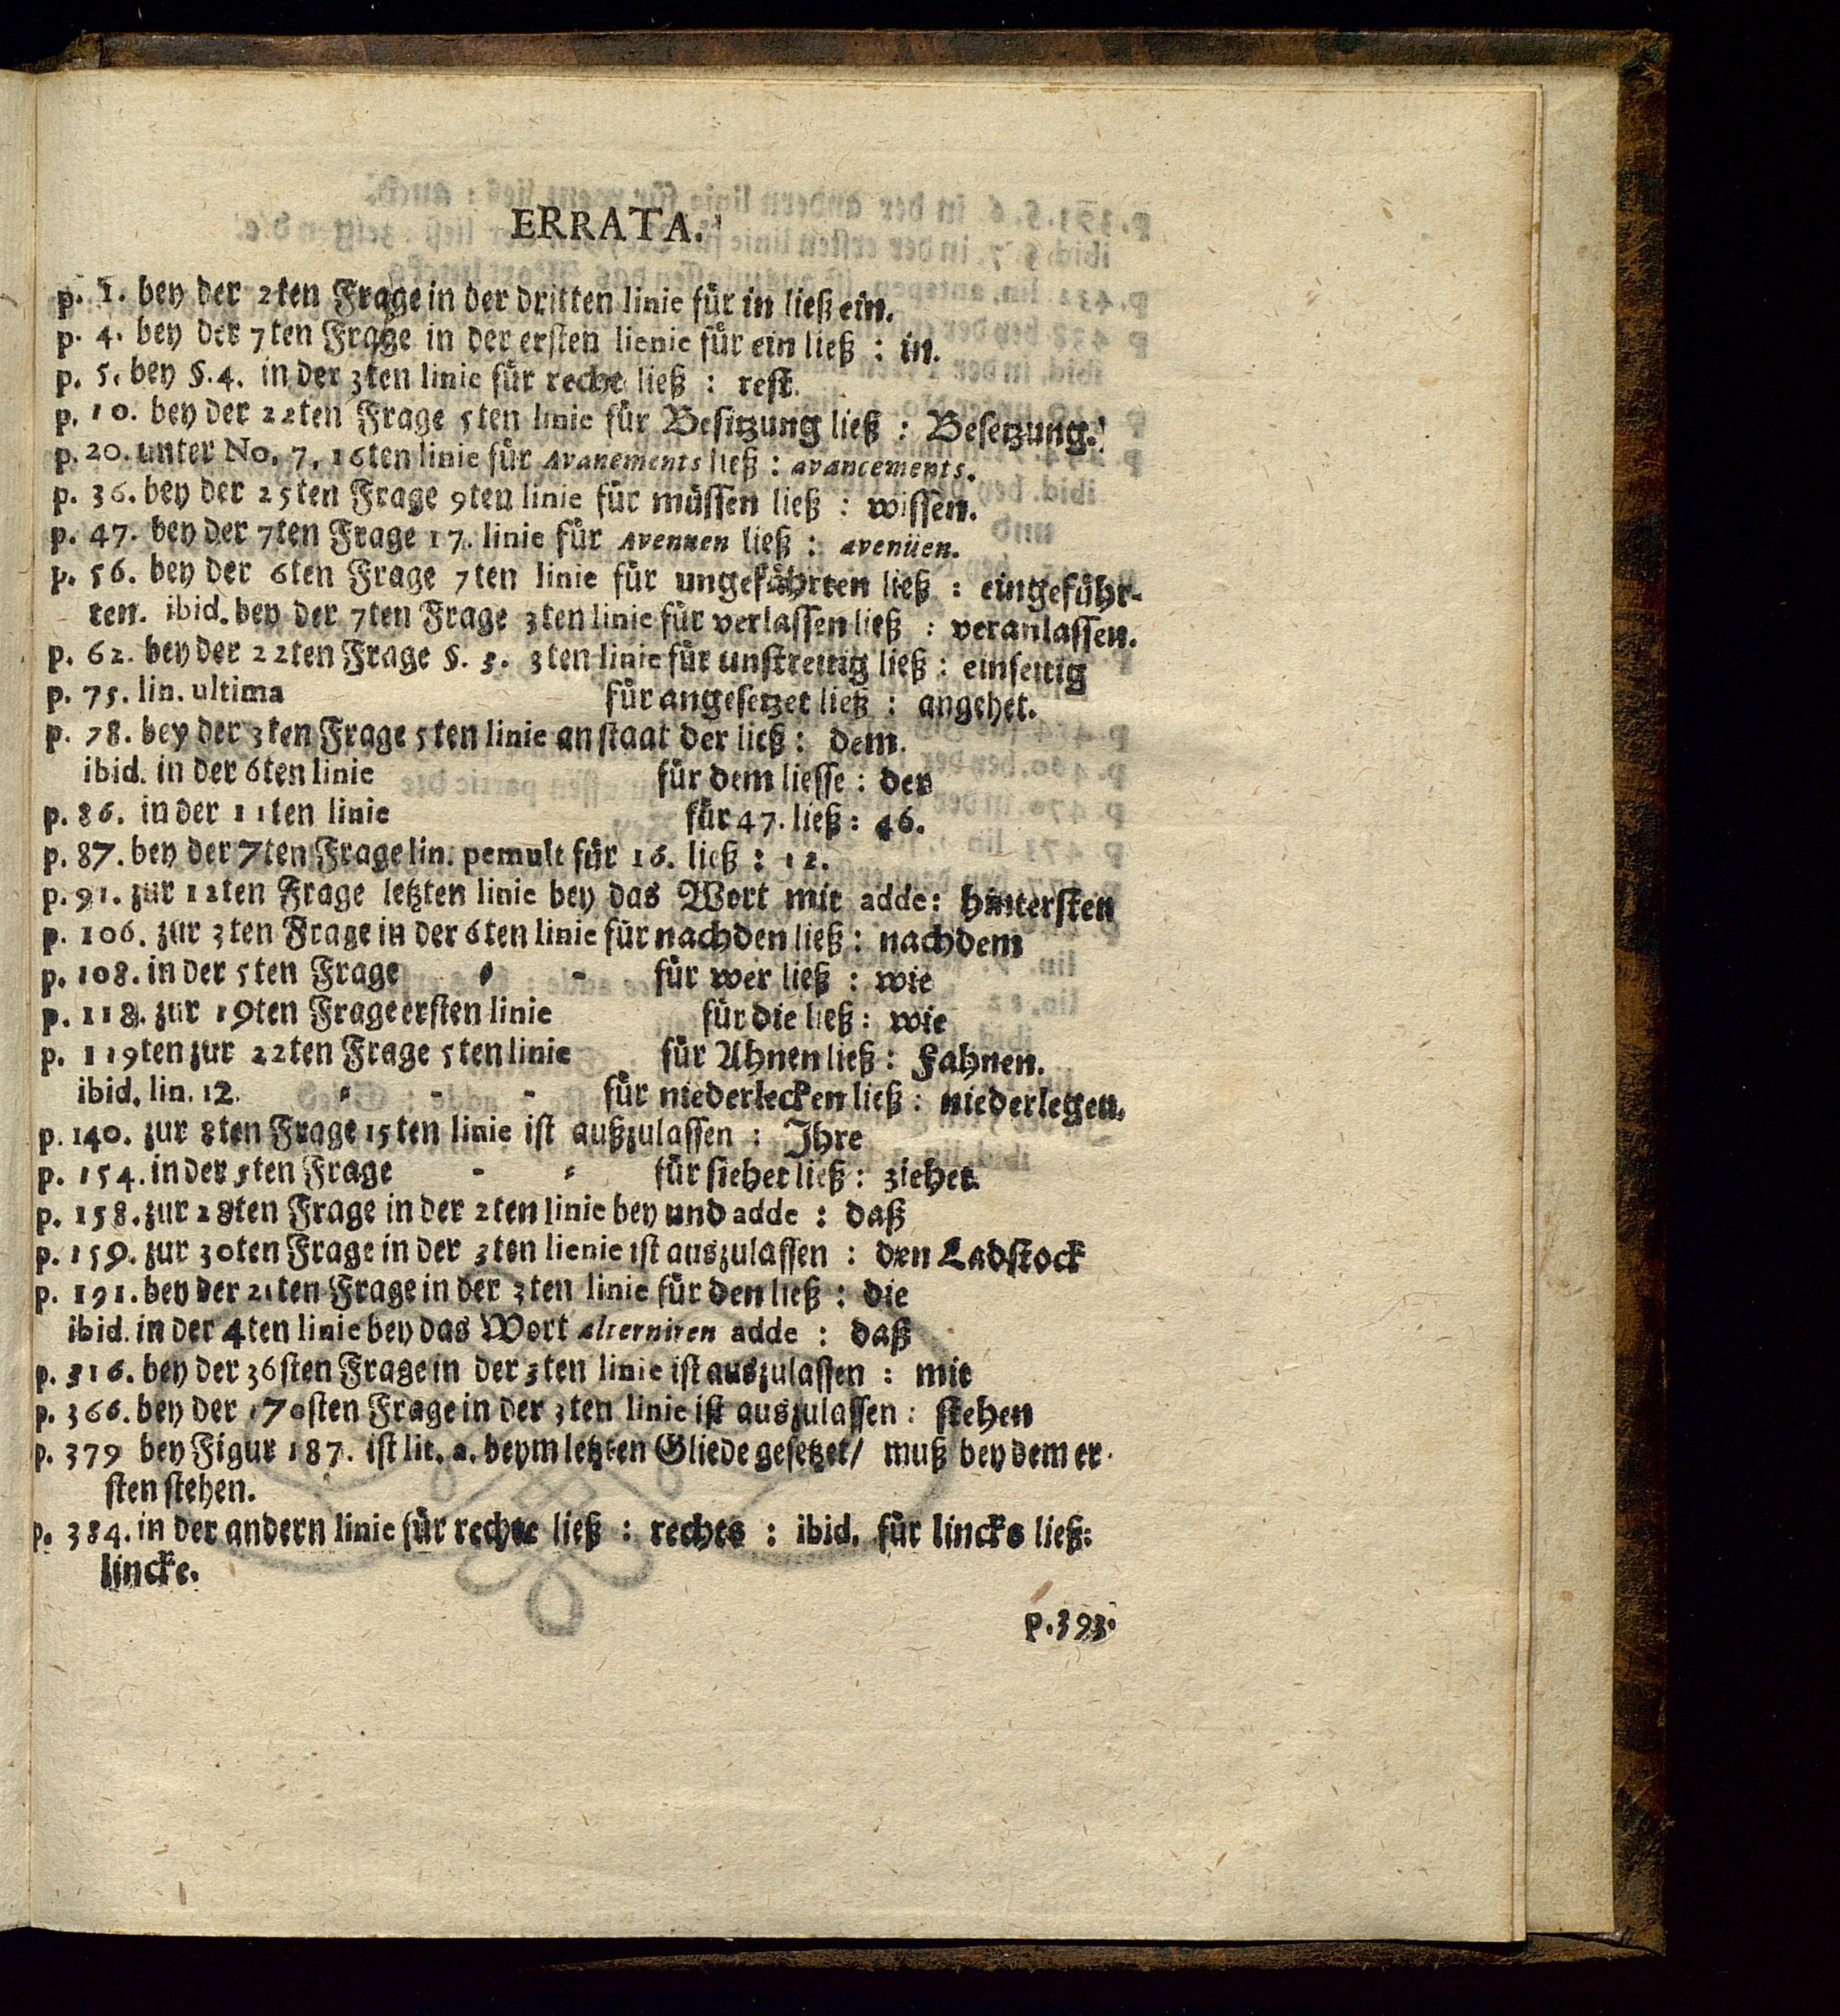 ERRATA.
p. 1. bey der 2ten Frage in der dritten linie für in ließ ein.
p. 4. bey der 7ten Frage in der ersten lienie für ein ließ : in.
p. 5. bey §. 4. in der 3ten linie für reche ließ : rest.
p. 10. bey der 22ten Frage 5ten linie für Besitzung ließ : Besetzung.
p. 20. unter No. 7. 16ten linie für avanements ließ : avancements.
p. 36. bey der 25ten Frage 9ten linie für müssen ließ : wissen.
p. 47. bey der 7ten Frage 17. linie für avennen ließ : avenüen.
p. 56. bey der 6ten Frage 7ten linie für ungefährten ließ : eingeführ-
ten. ibid. bey der 7ten Frage 3ten linie für verlassen ließ : veranlassen.
p. 62. bey der 22ten Frage §. 3. 3ten linie für unstreitig ließ : einseitig
p. 75. lin. ultima für angesetzet ließ : angehet.
p. 78. bey der 3ten Frage 5ten linie anstaat der ließ : dem.
ibid. in der 6ten linie für dem liesse : der
p. 86. in der 11ten linie für 47. ließ : 46.
p. 87. bey der 7ten Frage lin. pemult für 16. ließ : 12.
p. 91. zur 12ten Frage letzten linie bey das Wort mit adde : hintersten
p. 106. zur 3ten Frage in der 6ten linie für nachden ließ : nachdem
p. 108. in der 5ten Frage - - für wer ließ : wie
p. 118. zur 19ten Frage ersten linie für die ließ : wie
p. 119ten zur 22ten Frage 5ten linie für Ahnen ließ : Fahnen.
ibid. lin. 12. - - - für niederlecken ließ : niederlegen.
p. 140. zur 8ten Frage 15ten linie ist außzulassen : Ihre
p. 154. in der 5ten Frage - - für siehet ließ : ziehet.
p. 158. zur 28ten Frage in der 2ten linie bey und adde : daß
p. 159. zur 30ten Frage in der 3ten lienie ist auszulassen : den Ladstock
p. 191. bey der 21ten Frage in der 3ten linie für den ließ : die
ibid. in der 4ten linie bey das Wort alterniren adde : daß
p. 316. bey der 36sten Frage in der 3ten linie ist auszulassen : mit
p. 366. bey der 170sten Frage in der 3ten linie ist auszulassen : stehen
p. 379 bey Figur 187. ist lit. a. beym letzten Gliede gesetzet/ muß bey dem er-
sten stehen.
p. 384. in der andern linie für rechte ließ : rechts : ibid. für lincks ließ:
lincke.
p. 393.